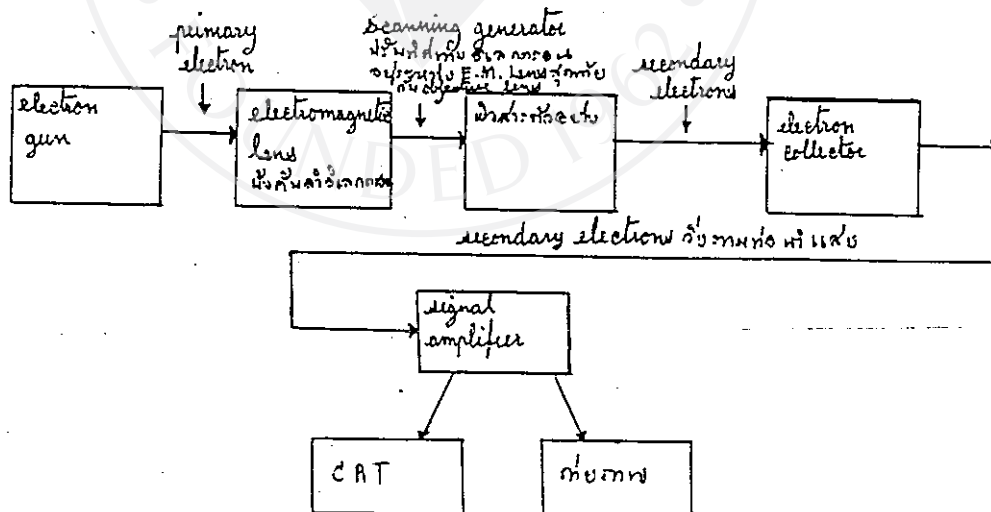 primary
electron
scanning generator
ปรับทิศทางอิเลกตรอน
อยู่ระหว่าง E.M. Lens สุดท้าย
กับ objective lens
secondary
electrons
electron
gun
electromagnetic
lens
บังคับลำอิเลกตรอน
ผิวสารตัวอย่าง
electron
collector
secondary electrons วิ่งตามท่อนำแสง
signal
amplifier
CRT
ถ่ายภาพ